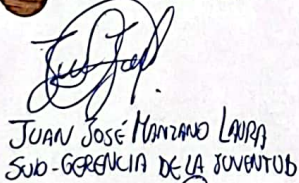 JUAN JOSÉ MANZANO LAURA
SUB-GERENCIA DE LA JUVENTUD